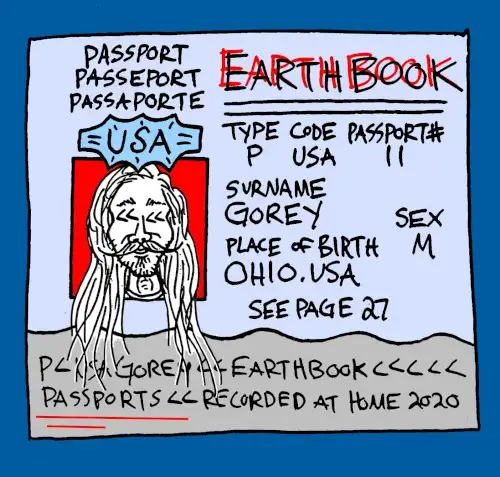 PASSPORT
PASSEPORT
PASSAPORTE
USA
EARTH BOOK
TYPE CODE PASSPORT#
P USA 11
SURNAME
GOREY
SEX
PLACE OF BIRTH M
OHIO.USA
SEE PAGE 27
P<USA.GOREY<<EARTHBOOK<<<<<
PASSPORTS<<RECORDED AT HOME 2020